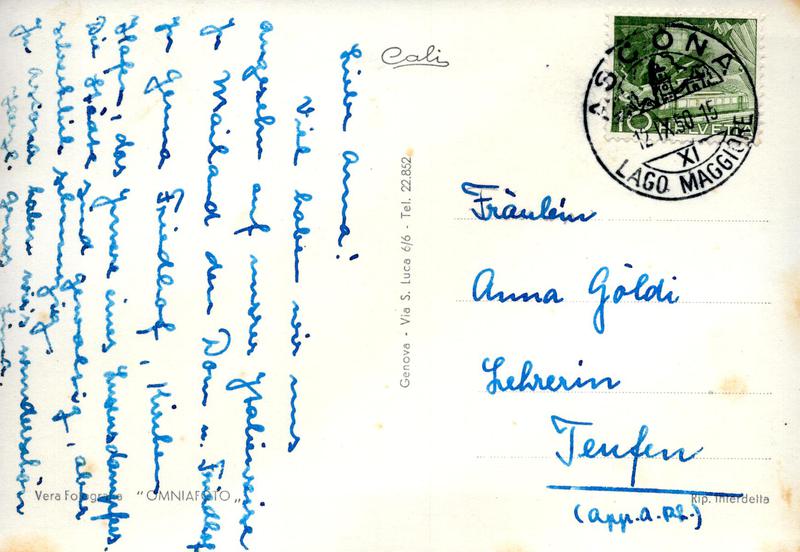 Liebe Anna!
Viel haben wir uns
angesehn auf unsrer Italienreise
In Mailand den Dom u. Friedhof
In Genua Friedhof, Kirchen
Hafen, das Innere eines Luxusdampfers.
Die Städte sind gewaltig, aber
schrecklich schmutzig.
In Ascona haben wir's wunderschön
Herzl. Gruss
Cali
Genova - Via S. Luca 6/6 - Tel. 22.852
Vera Fotografia "OMNIAFOTO"
Rip. Interdetta
10 HELVETIA
ASCONA
12.IX.50-15
XI
LAGO MAGGIORE
Fräulein
Anna Göldi
Lehrerin
Teufen
(App. a. Rh.)